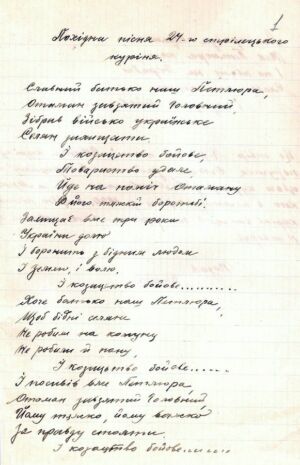 1
Похідна пісня 24-го стрілецького
куріня.
Славний батько наш Петлюра,
Отаман завзятий Головний.
Зібрав військо українське
Селян захищати
І козацтво бойове,
Товариство удале
Йде на поміч Отаману
В його тяжкій боротьбі.
Захищає вже три роки
Україну
І боронить з бідним людом
І землю, і волю.
І козацтво бойове...........
Хоче батько наш Петлюра,
Щоб бідні селяне
Не робили на комуну
Не робили й пану,
І козацтво бойове.......
І посивів вже Петлюра
Отаман завзятий Головний
Йому тяжко, йому важко
За правду стояти
І козацтво бойове.......